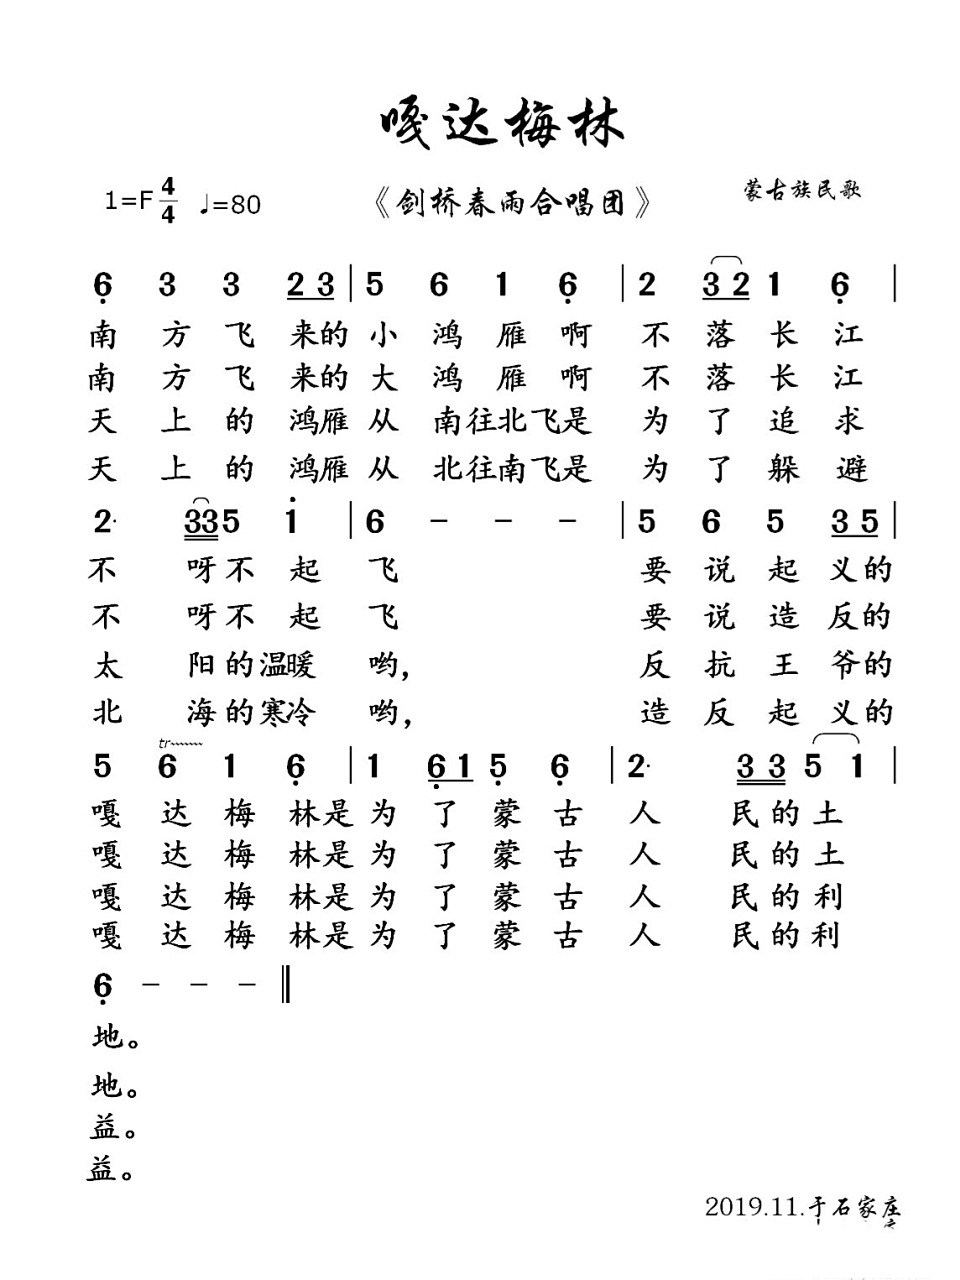 嘎达梅林
1=F 4/4 ♩=80 《剑桥春雨合唱团》 蒙古族民歌
6̣ 3 3 2 3 | 5 6 1 6̣ | 2 3 2 1 6̣ |
南 方 飞 来的 小 鸿 雁 啊 不 落 长 江
南 方 飞 来的 大 鸿 雁 啊 不 落 长 江
天 上 的 鸿雁 从 南往北飞是 为 了 追 求
天 上 的 鸿雁 从 北往南飞是 为 了 躲 避
2· 3 3 5 1̇ | 6 - - - | 5 6 5 3 5 |
不 呀不 起 飞 要 说 起 义的
不 呀不 起 飞 要 说 造 反的
太 阳的温暖 哟, 反 抗 王 爷的
北 海的寒冷 哟, 造 反 起 义的
tr
5 6 1 6̣ | 1 6̣ 1 5̣ 6̣ | 2· 3 3 5 1 |
嘎 达 梅 林是 为 了 蒙 古 人 民 的 土
嘎 达 梅 林是 为 了 蒙 古 人 民 的 土
嘎 达 梅 林是 为 了 蒙 古 人 民 的 利
嘎 达 梅 林是 为 了 蒙 古 人 民 的 利
6̣ - - - ‖
地。
地。
益。
益。
2019.11.于石家庄